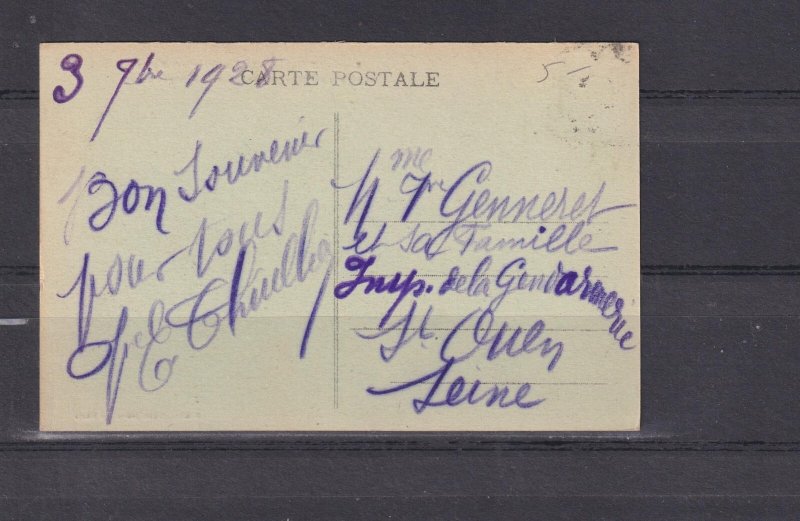 3 7bre 1928
CARTE POSTALE
5-
Bon Souvenir
pour tous
Mme Genneret
et sa Famille
Imp. de la Gendarmerie
St. Ouen
Seine